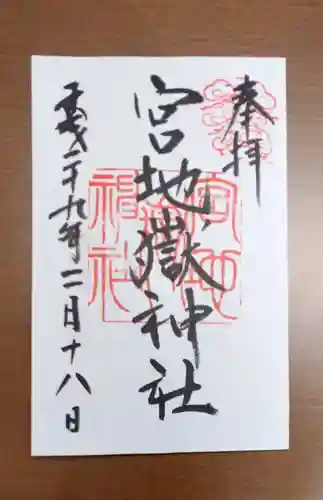 奉拝
宮地嶽神社
平成二十九年二月十八日
宮地
神社